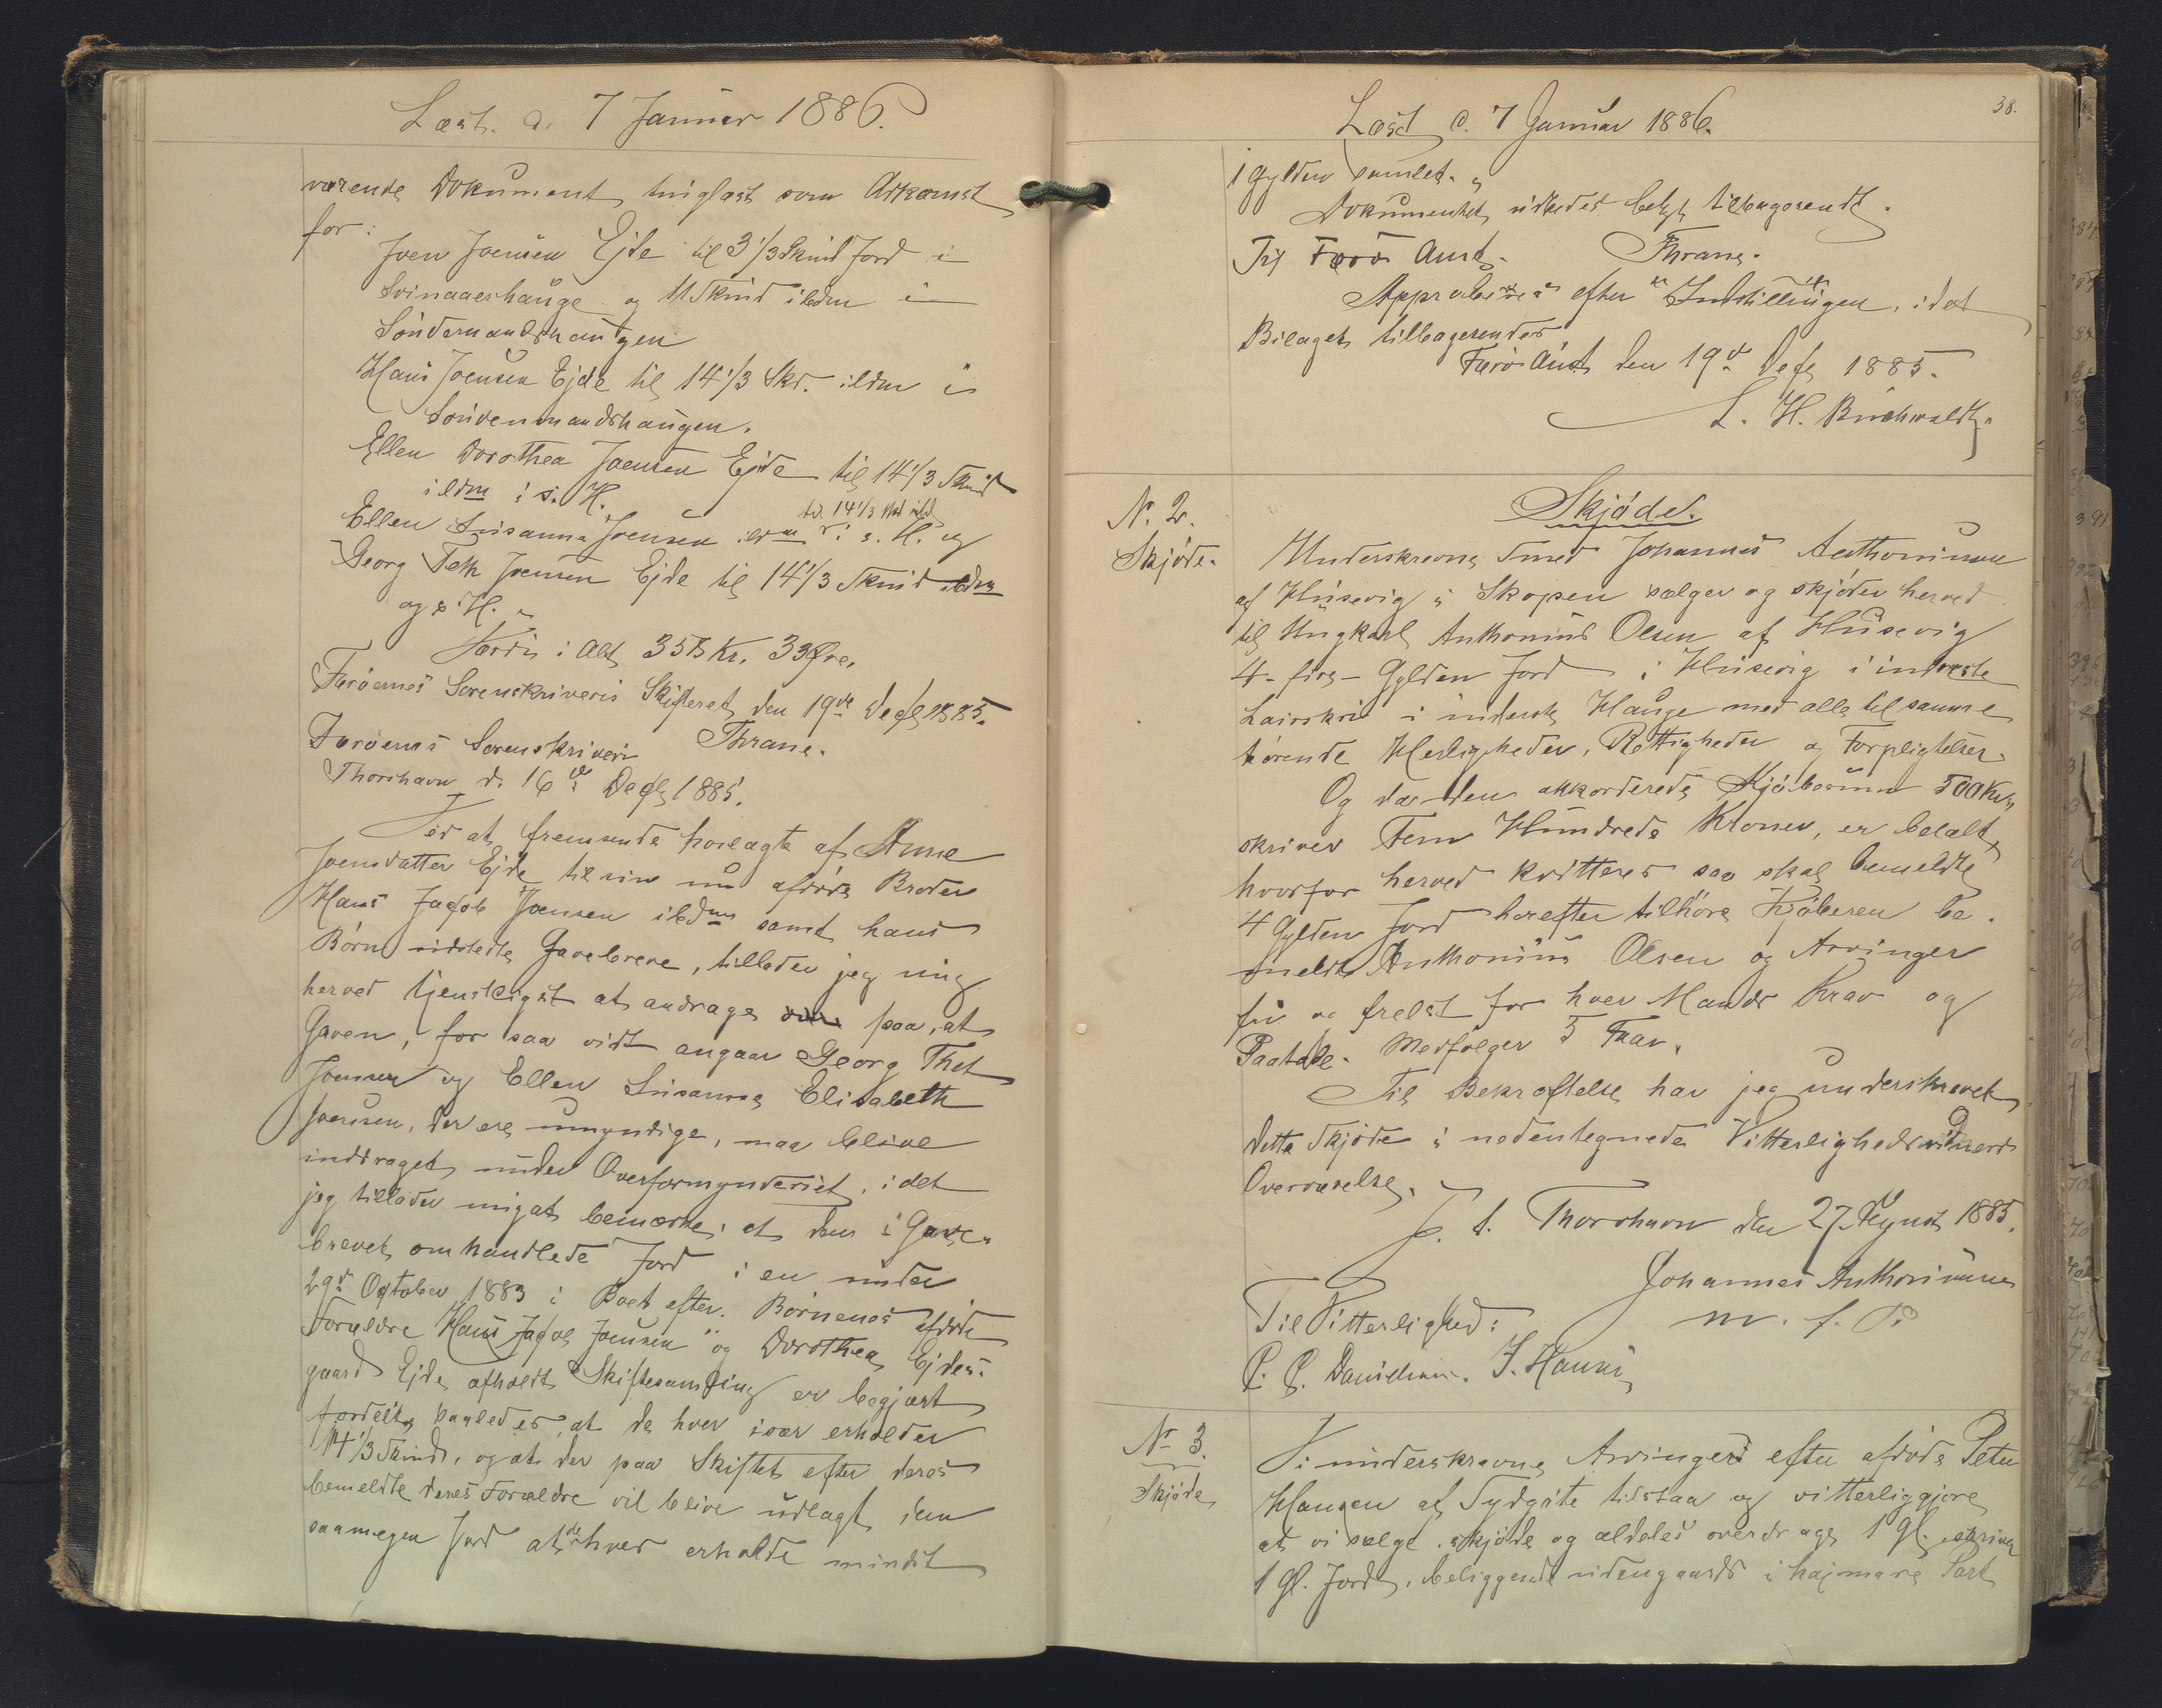 Læst. d. 7 Januar 1886.
værende Dokument tinglæst som Adkomst
for:
Joen Joensen Ejde til 3 1/3 Skind Jord i
Svinaaeshauge og 11 Skind ibdm i
Söndermandshaugen
Hans Joensen Ejde til 14 1/3 Skd. ibdm i
Söndenmandshaugen.
Ellen Dorothea Joensen Ejde til 14 1/3 Skind
ibdm i s. H.
til 14 1/3 Skd ibd
Ellen Susanna Joensen ibdm i s. H. og
Georg Teth Joensen Ejde til 14 1/3 Skind ibdm
og s H.
Værdi i alt 358 Kr. 33 Øre.
Færöernes Sorenskriveri Skifteret den 19de Decbr 1885.
Thrane.
Færöernes Sorenskriveri
Thorshavn d. 16de Decbr 1885.
Ved at fremsende hoslagte af Anne
Joensdatter Ejde til sin nu afdöde Broder
Hans Jacob Joensen ibdm samt hans
Börn udstedte Gavebreve, tillader jeg mig
herved tjenstligst at andrage paa, at
Gaven, for saa vidt angaar Georg Thet
Joensen og Ellen Susanna Elisabeth
Joensen, der ere umyndige, maa blive
inddraget under Overformynderiet, idet
jeg tillader mig at bemærke, at den i Gave-
brevet omhandlede Jord i en under
29de October 1883 i Boet efter Börnenes afdöde
Forældre Hans Jacob Joensen og Dorothea Ejdes-
gaard Ejde afholdt Skiftesamling er begjært
fordelt saaledes, at de hver især erholder
14 1/3 Skind, og at der paa Skiftet efter deres
bemeldte deres Forældre vil blive udlagt dem
saamegen Jord at de hver erholde mindst
38.
Læst d. 7 Januar 1886.
1 Gylden samlet.
Dokumentet udbedes belagt tilbagesendt.
Thrane.
Til Færö Amt.
Approberes efter Indstillingen, idet
Bilaget tilbagesendes
Færö Amt den 19de Decbr 1885.
L. H. Buchwaldt.
N. 2.
Skjöde.
Skjöde.
Underskrevne Smed Johannes Anthoniusen
af Husevig i Skopen sælger og skjöder herved
til Ungkarl Anthonius Olsen af Husevig
4 - fire - Gylden Jord i Husevig i inderste
i inderste Hauge med alle til samme
hörende Herligheder, Rettigheder og Forpligtelser.
Og da den akkorderede Kjöbesum 500 Kr.
skriver Fem Hundrede Kroner, er betalt,
hvorfor herved kvitteres saa skal bemeldte
4 Gylden Jord herefter tilhöre Kjöberen be-
meldte Anthonius Olsen og Arvinger
fri og frelst for hver Mands Krav og
Paatale. Medfölger 5 Faar.
Til Bekræftelse har jeg underskrevet
dette Skjöde i nedentegnede Vitterlighedsvidners
Overværelse.
p. t. Thorshavn den 27 August 1885.
Johannes Anthoniusen
m. f. P.
Til Vitterlighed:
P. P. Davidsen. J. Hansen
N. 3.
Skjöde
Vi underskrevne Arvinger efter afdöde Peter
Hansen af Sydgöte tilstaa og vitterliggjöre
at vi sælge, skjöde og aldeles overdrage 1 Gl. skriver
1 Gl. Jord, beliggende udengaards i hajmare Part